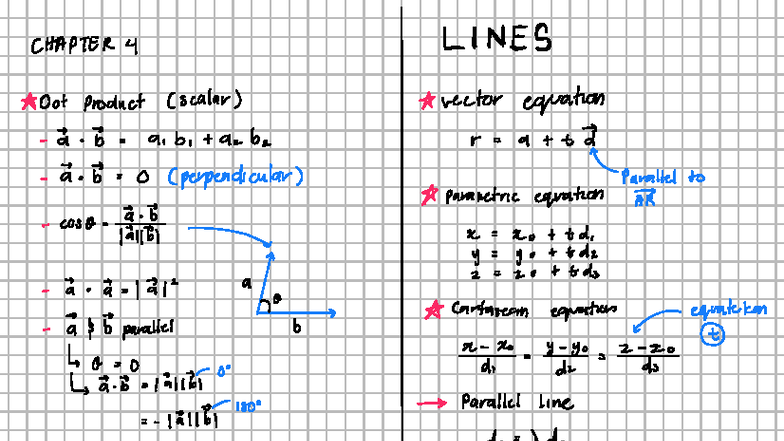 CHAPTER 4
★ Dot Product (scalar)
- a⃗ · b⃗ = a₁ b₁ + a₂ b₂
- a⃗ · b⃗ = 0 (perpendicular)
- cos θ = a⃗ · b⃗ / |a⃗||b⃗|
a
θ
b
- a⃗ · a⃗ = |a⃗|²
- a⃗ & b⃗ parallel
↳ θ = 0
↳ a⃗ · b⃗ = |a⃗||b⃗| 0°
= -|a⃗||b⃗| 180°
LINES
★ vector equation
r = a + t d⃗
Parallel to
★ Parametric equation
x = x₀ + t d₁
y = y₀ + t d₂
z = z₀ + t d₃
★ Cartesean equation
equate ken
t
x - x₀ / d₁ = y - y₀ / d₂ = z - z₀ / d₃
→ Parallel line